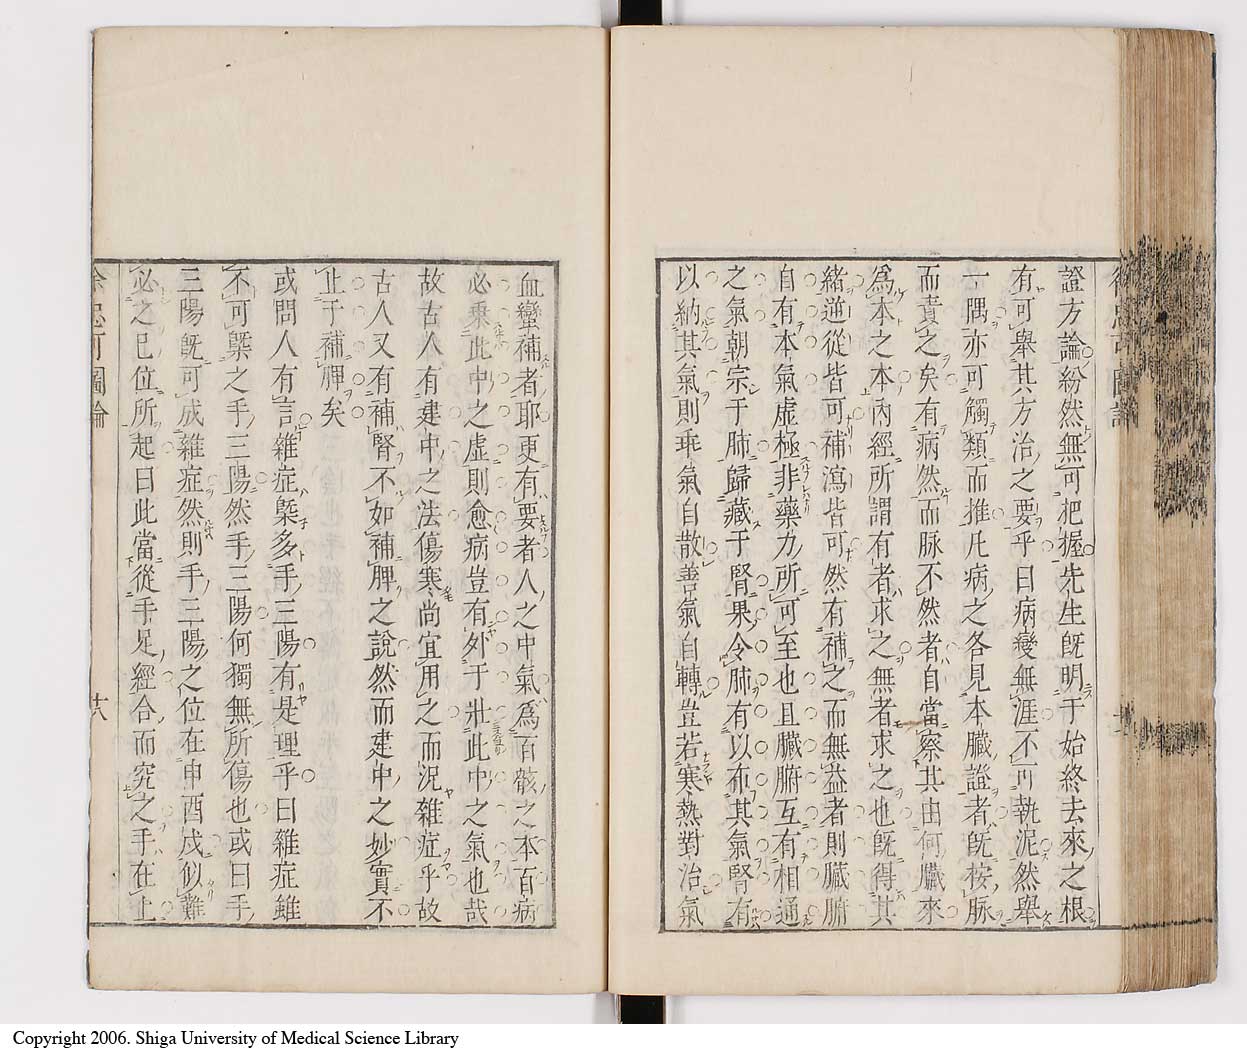 證方論紛然無可把握先生既明于始終去來之根
有可舉其方治之要乎曰病變無涯不可執泥然舉
一隅亦可觸類而推凡病之各見本臟證者既按脉
而責之矣有病然而脉不然者自當察其由何臟來
為本之本內經所謂有者求之無者求之也既得其
緒逆從皆可補瀉皆可然有補之而無益者則臟腑
自有本氣虛極非藥力所可至也且臟腑互有相通
之氣朝宗于肺歸藏于腎果令肺有以布其氣腎有
以納其氣則乖氣自散善氣自轉豈若寒熱對治氣
血蠻補者耶更有要者人之中氣為百骸之本百病
必乘此中之虛則愈病豈有外于壯此中之氣也哉
故古人有建中之法傷寒尚宜用之而況雜症乎故
古人又有補腎不如補脾之說然而建中之妙實不
止于補脾矣
或問人有言雜症槩多手三陽有是理乎曰雜症雖
不可槩之手三陽然手三陽何獨無所傷也或曰手
三陽既可成雜症然則手三陽之位在申酉戌似難
必之巳位所起曰此當從手足經合而究之手在上
徐忠可圖論
十六
Copyright 2006. Shiga University of Medical Science Library